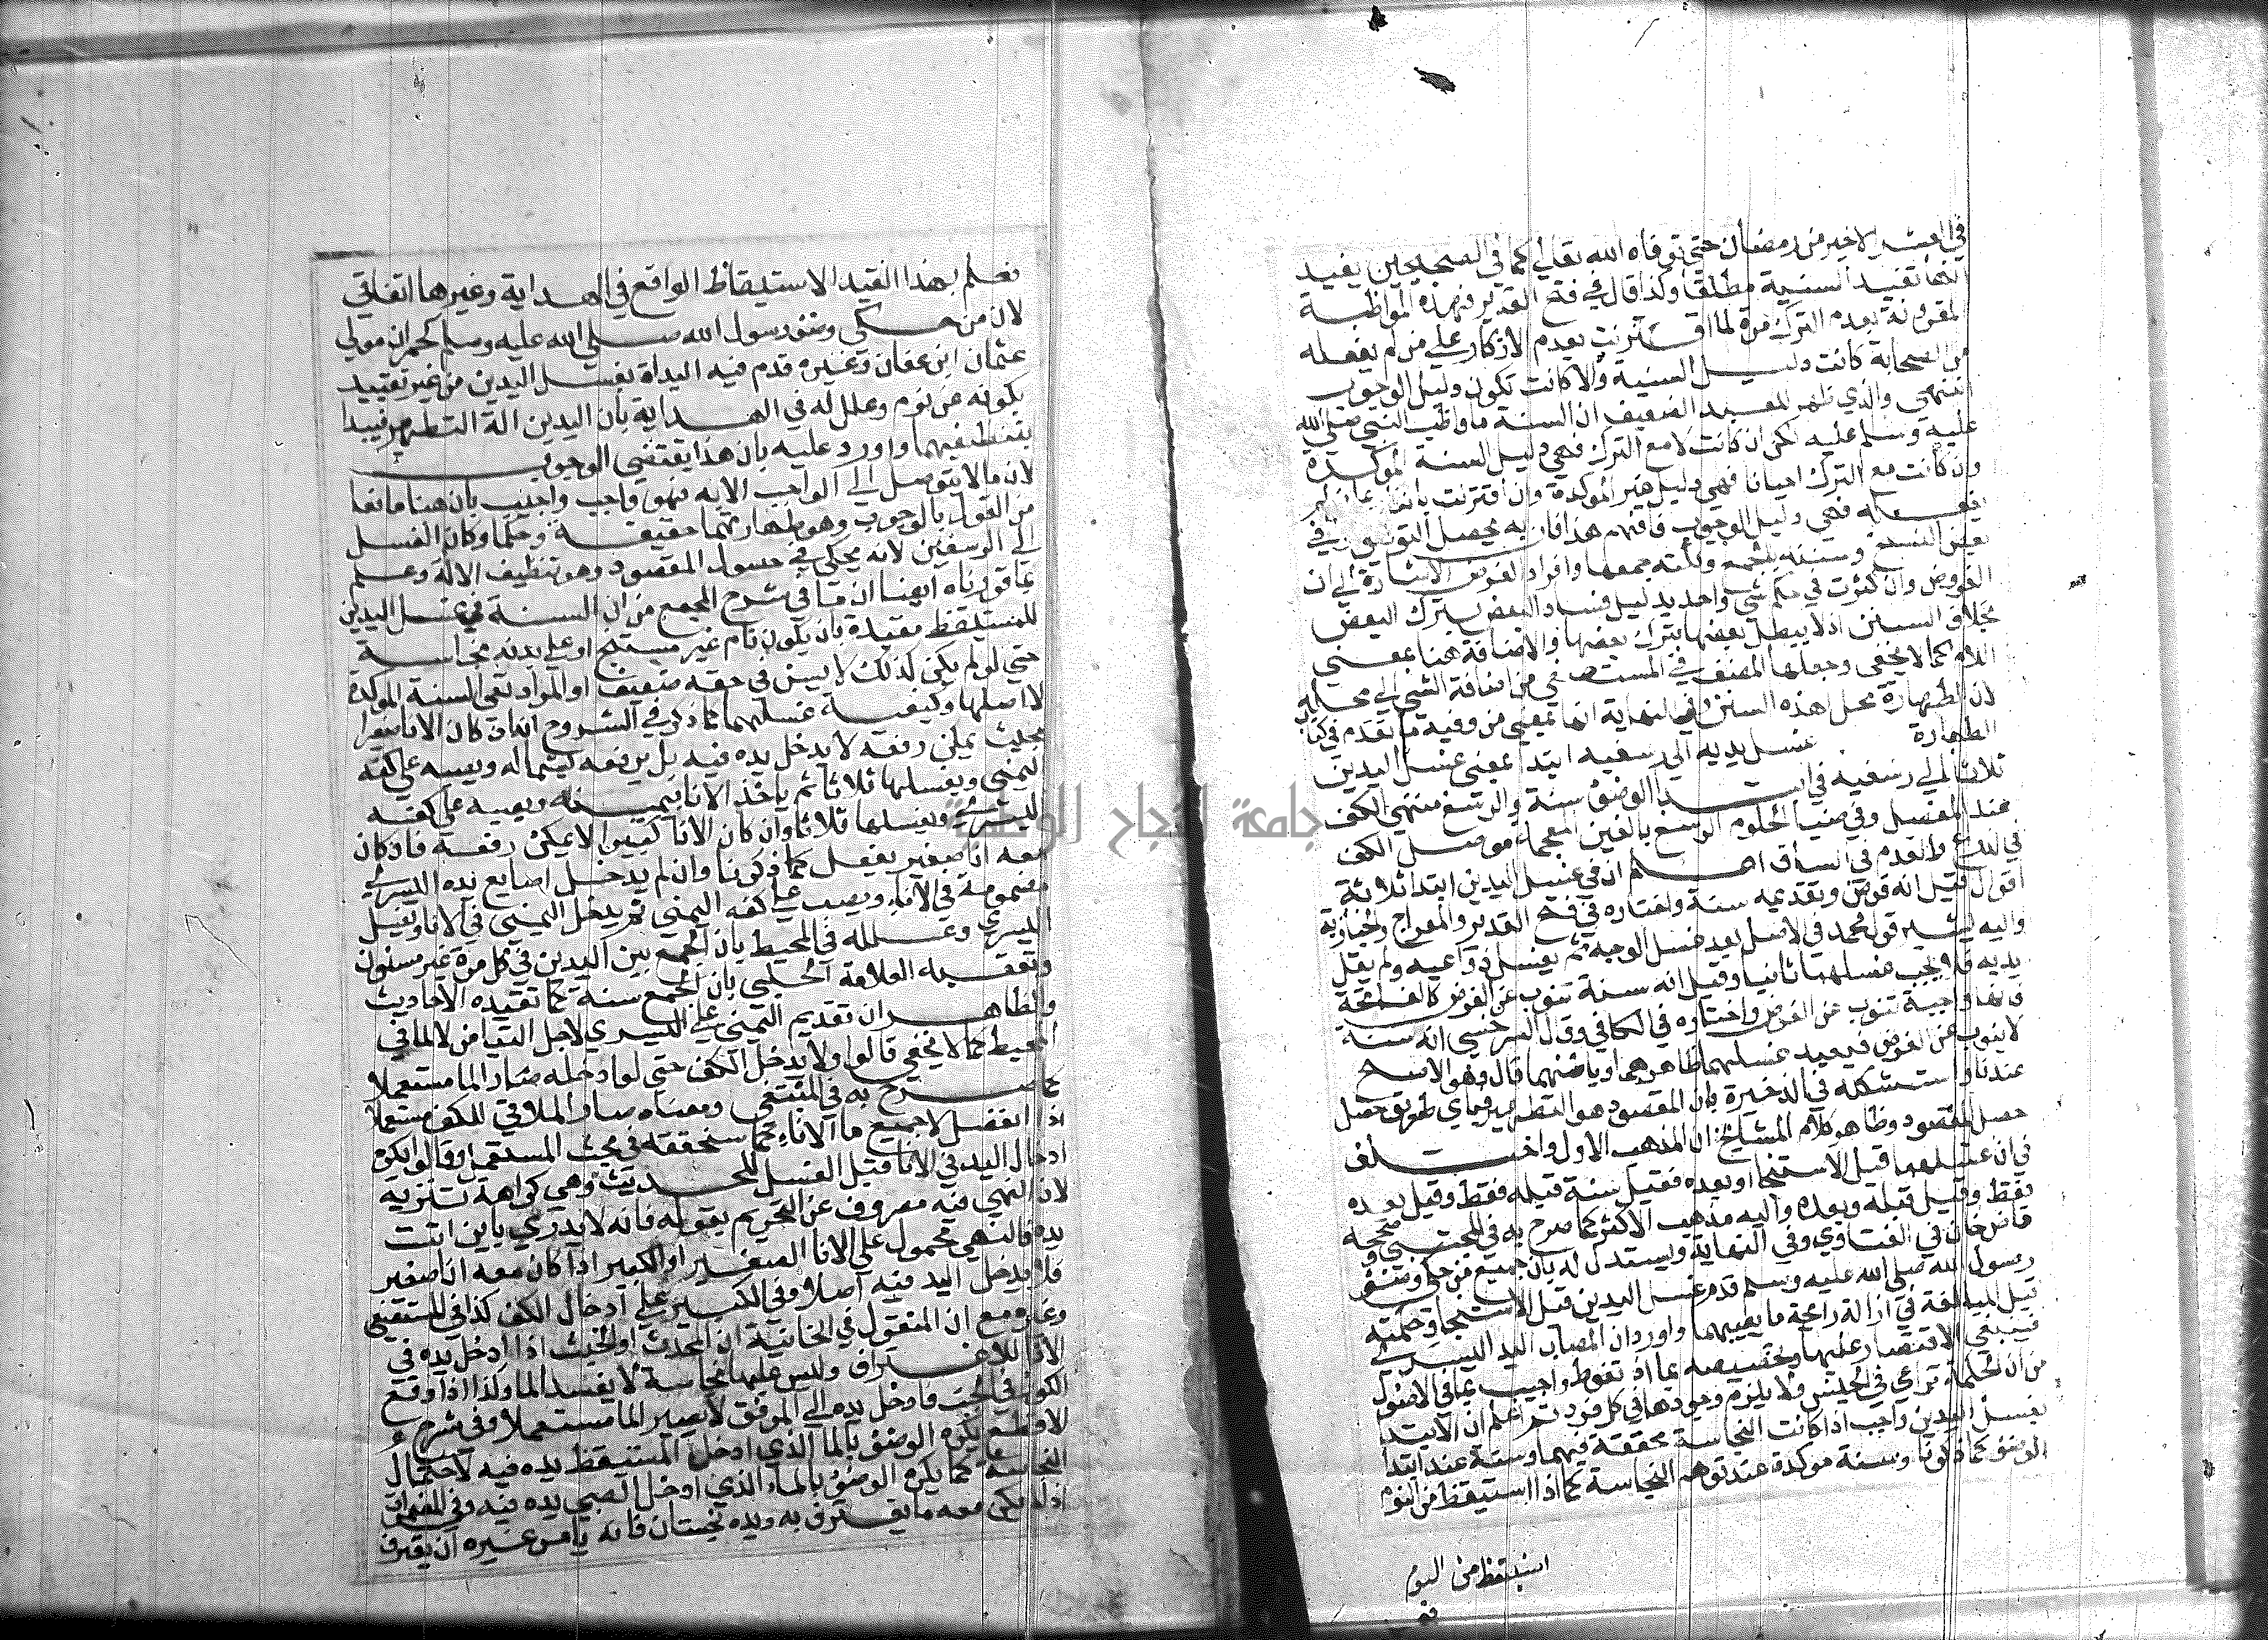 في العشر الاخير من رمضان حتى توفاه الله تعالى كما في الصحيحين يفيد
انها تفيد السنية مطلقا ولذا قال في فتح القدير فهذه المواظبة
المقرونة بعدم الترك مرة لما اقترنت بعدم الانكار على من لم يفعله
من الصحابة كانت دليل السنية والا كانت تكون دليل الوجوب
انتهى والذي ظهر للعبد الضعيف ان السنة ما واظب النبي صلى الله
عليه وسلم عليه لكن ان كانت لا مع الترك فهي دليل السنة المؤكدة
وان كانت مع الترك احيانا فهي دليل غير المؤكدة وان اقترنت بانكار على من لم
يفعله فهي دليل الوجوب فافهم هذا فان به يحصل التوفيق وفي
بعض النسخ وسننه بالجمع ونكتة جمعها وافراد الفرض الاشارة الى ان
الفروض وان كثرت في حكم شي واحد بدليل فساد البعض بترك البعض
بخلاف السنن اذ لا يبطل بعضها بترك بعضها والاضافة هنا بمعنى
اللام كما لا يخفى وجعلها المصنف في المستصفى من اضافة الشي الى محله
لان الطهارة محل هذه السنن وفي النهاية انها بمعنى من وفيه ما تقدم في كتاب
الطهارة غسل يديه الى رسغيه ابتدا يعني غسل اليدين
ثلاثا الى رسغيه في ابتدا الوضوء سنة والرسغ منتهى الكف
عند المفصل وفي ضيا الحلوم الرسغ بالغين المعجمة موصل الكف
في الذراع والقدم في الساق اعلم ان في غسل اليدين ابتدا ثلاثة
اقوال قيل انه فرض وتقديمه سنة واختاره في فتح القدير والمعراج والخبازية
واليه يشير قول محمد في الاصل بعد غسل الوجه ثم يغسل ذراعيه ولم يقل
يديه فلا يجب غسلهما ثانيا وقيل انه سنة تنوب عن الفرض كالفاتحة
فانها واجبة تنوب عن الفرض واختاره في الكافي وقال السرخسي انه سنة
لا ينوب عن الفرض فيعيد غسلهما ظاهرهما وباطنهما قال وهو الاصح
عندنا واستشكله في الذخيرة بان المقصود هو التطهير فباي طريق حصل
حصل المقصود وظاهر كلام المشايخ ان المذهب الاول واختلف
في ان غسلهما قبل الاستنجا او بعده فقيل سنة قبله فقط وقيل بعده
فقط وقيل قبله وبعده واليه مذهب الاكثر كما صرح به في المجتبى وصححه
قاضي خان في الفتاوي وفي النهاية ويستدل له بان جميع من حكى وضوء
رسول الله صلى الله عليه وسلم قدم غسل اليدين قبل الاستنجا وحكمته
قبل المبالغة في ازالة رائحة ما يصيبهما واورد ان المصاب اليد اليسرى
فينبغي الاقتصار عليها وتخصيصه بما اذا تغوط واجيب بما في الاصول
من ان الحكمة تراعي في الجنس ولا يلزم وجودها في كل فرد ثم اعلم ان الابتدا
بغسل اليدين واجب اذا كانت النجاسة محققة فيهما وسنة عند ابتدا
الوضوء كما ذكرنا وسنة مؤكدة عند توهم النجاسة كما اذا استيقظ من النوم
استيقظ من النوم
فعلم بهذا القيد الاستيقاظ الواقع في الهداية وغيرها اتفاقي
لان من حكى وضوء رسول الله صلى الله عليه وسلم كحمران مولى
عثمان ابن عفان وغيره قدم فيه البداة بغسل اليدين من غير تقييد
بكونه عن نوم وعلل له في الهداية بان اليدين الة التطهير فيبدا
بتنظيفهما واورد عليه بان هذا يقتضي الوجوب
لان ما لا يتوصل الى الواجب الا به فهو واجب واجيب بان هنا مانعا
من القول بالوجوب وهو طهارتهما حقيقة وحكما وكان الغسل
الى الرسغين لانه يكفي في حصول المقصود وهو تنظيف الالة وعلم
بما قررناه ايضا ان ما في شرح المجمع من ان السنة في غسل اليدين
للمستيقظ مقيدة بان يكون نام غير مستنج او على بدنه نجاسة
حتى لو لم يكن كذلك لا يسن في حقه ضعيف او المراد نفي السنة المؤكدة
لا اصلها وكيفية غسلهما كما ذكر في الشروح انه ان كان الانا صغيرا
بحيث يمكن رفعه لا يدخل يده فيه بل يرفعه بشماله ويصبه على كفه
اليمنى ويغسلها ثلاثا ثم ياخذ الانا بيمينه ويصبه على كفه
اليسرى ويغسلها ثلاثا وان كان الانا كبيرا لا يمكن رفعه فان كان
معه انا صغير يفعل كما ذكرنا وان لم يدخل اصابع يده اليسرى
مضمومة في الاناء ويصب على كفه اليمنى ثم يدخل اليمنى في الانا ويغسل
اليسرى وعلله في المحيط بان الجمع بين اليدين في كل مرة غير مسنون
وتعقبه العلامة الحلبي بان الجمع سنة كما تفيده الاحاديث
والظاهر ان تقديم اليمنى على اليسرى لاجل التيامن لا لما في
المحيط كما لا يخفى قالوا ولا يدخل الكف حتى لو ادخله صار الما مستعملا
كما صرح به في المبتغى ومعناه صار الملاقي للكف مستعملا
اذا انفصل لا جميع ما الاناء كما سنحققه في بحث المستعمل وقالوا يكره
ادخال اليد في الانا قبل الغسل للحديث وهي كراهة تنزيه
لان النهي فيه مصروف عن التحريم بقوله فانه لا يدري باين اتت
يده فالنهي محمول على الانا الصغير او الكبير اذا كان معه انا صغير
فلا يدخل اليد فيه اصلا وفي الكبير على ادخال الكف كذا في المستصفى
وغيره مع ان المنقول في الخانية ان المحدث او الجنب اذا ادخل يده في
الانا للاغتراف وليس عليها نجاسة لا يفسد الما وكذا اذا وقع
الكوز في الجب فادخل يده الى المرفق لا يصير الما مستعملا وفي شرح
الاقطع يكره الوضوء بالما الذي ادخل المستيقظ يده فيه لاحتمال
النجاسة كما يكره الوضوء بالماء الذي ادخل الصبي يده فيه وفي المضمرات
اذا لم يكن معه ما يغترف به ويده نجستان فانه يامر غيره ان يغترف
جامعة النجاح الوطنية